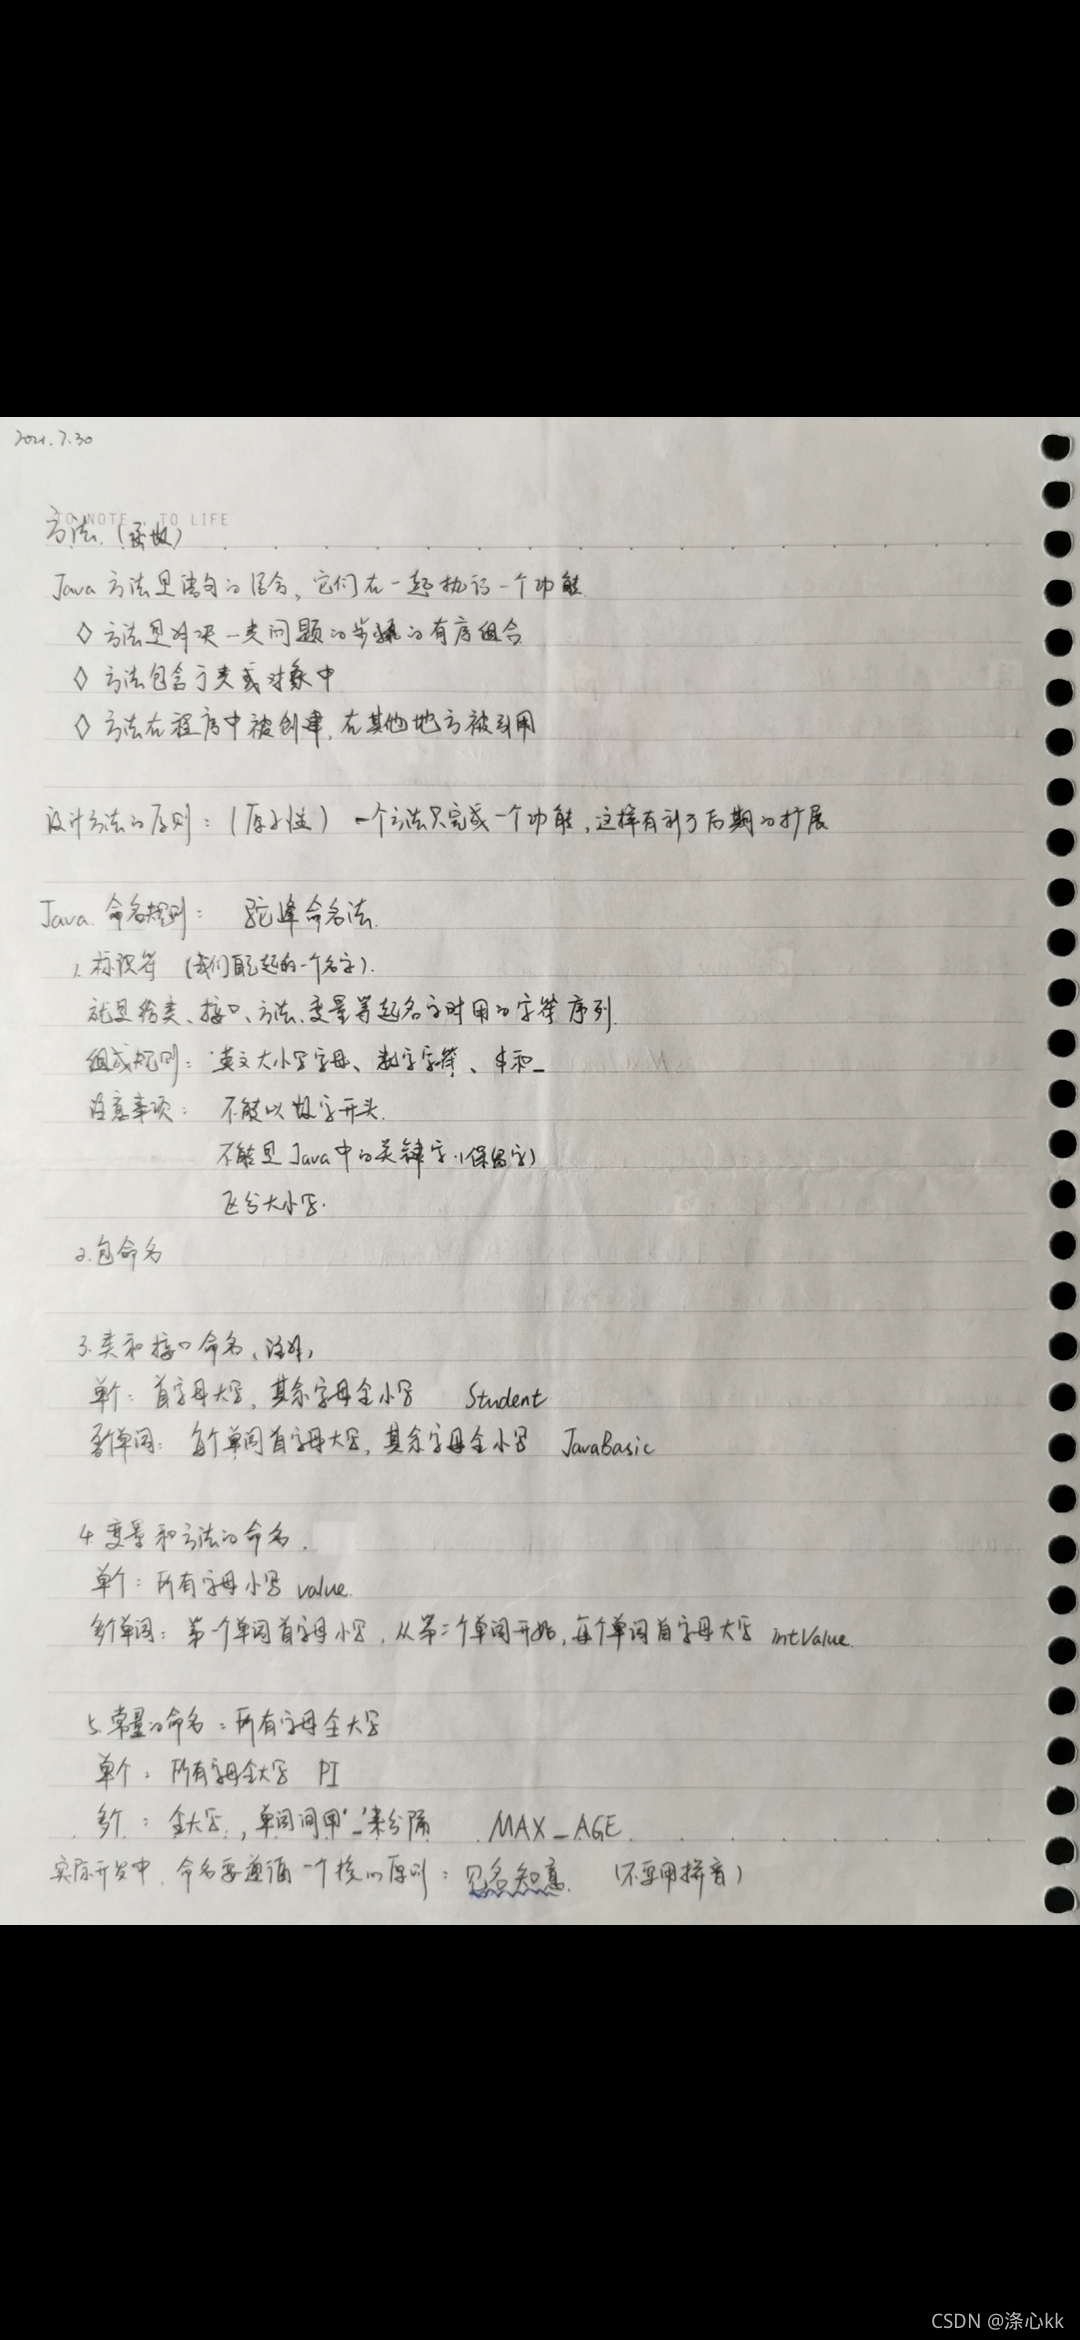 2021.7.30
TO NOTE TO LIFE
方法（函数）
Java 方法是语句的集合，它们在一起执行一个功能
◇ 方法是解决一类问题的步骤的有序组合
◇ 方法包含于类或对象中
◇ 方法在程序中被创建，在其他地方被引用
设计方法的原则：（原子性） 一个方法只完成一个功能，这样有利于后期的扩展
Java 命名规则： 驼峰命名法
1. 标识符 （我们自己起的一个名字）.
就是给类、接口、方法、变量等起名字时用的字符序列
组成规则：英文大小写字母、数字字符、$和_
注意事项： 不能以数字开头.
不能是Java中的关键字（保留字）
区分大小写.
2.包命名
3.类和接口命名、
单个：首字母大写，其余字母全小写 Student
多个单词：每个单词首字母大写，其余字母全小写 JavaBasic
4.变量和方法的命名.
单个：所有字母小写 value
多个单词：第一个单词首字母小写，从第二个单词开始，每个单词首字母大写 intValue
5.常量的命名：所有字母全大写
单个：所有字母全大写 PI
多个：全大写，单词间用'_'来分隔 MAX_AGE
实际开发中，命名要遵循一个核心原则：见名知意. （不要用拼音）
CSDN @涤心kk